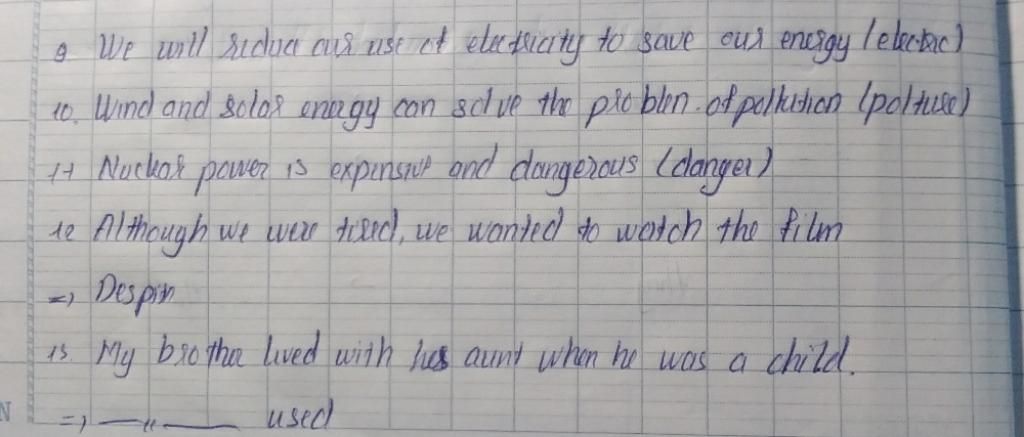 9 We will reduce our use of electricity to save our energy (electric)
10. Wind and solar energy can solve the problem of pollution (pollute)
11 Nuclear power is expensive and dangerous (danger)
12 Although we were tired, we wanted to watch the film
=> Despite
13. My brother lived with his aunt when he was a child.
=> —"— used
N